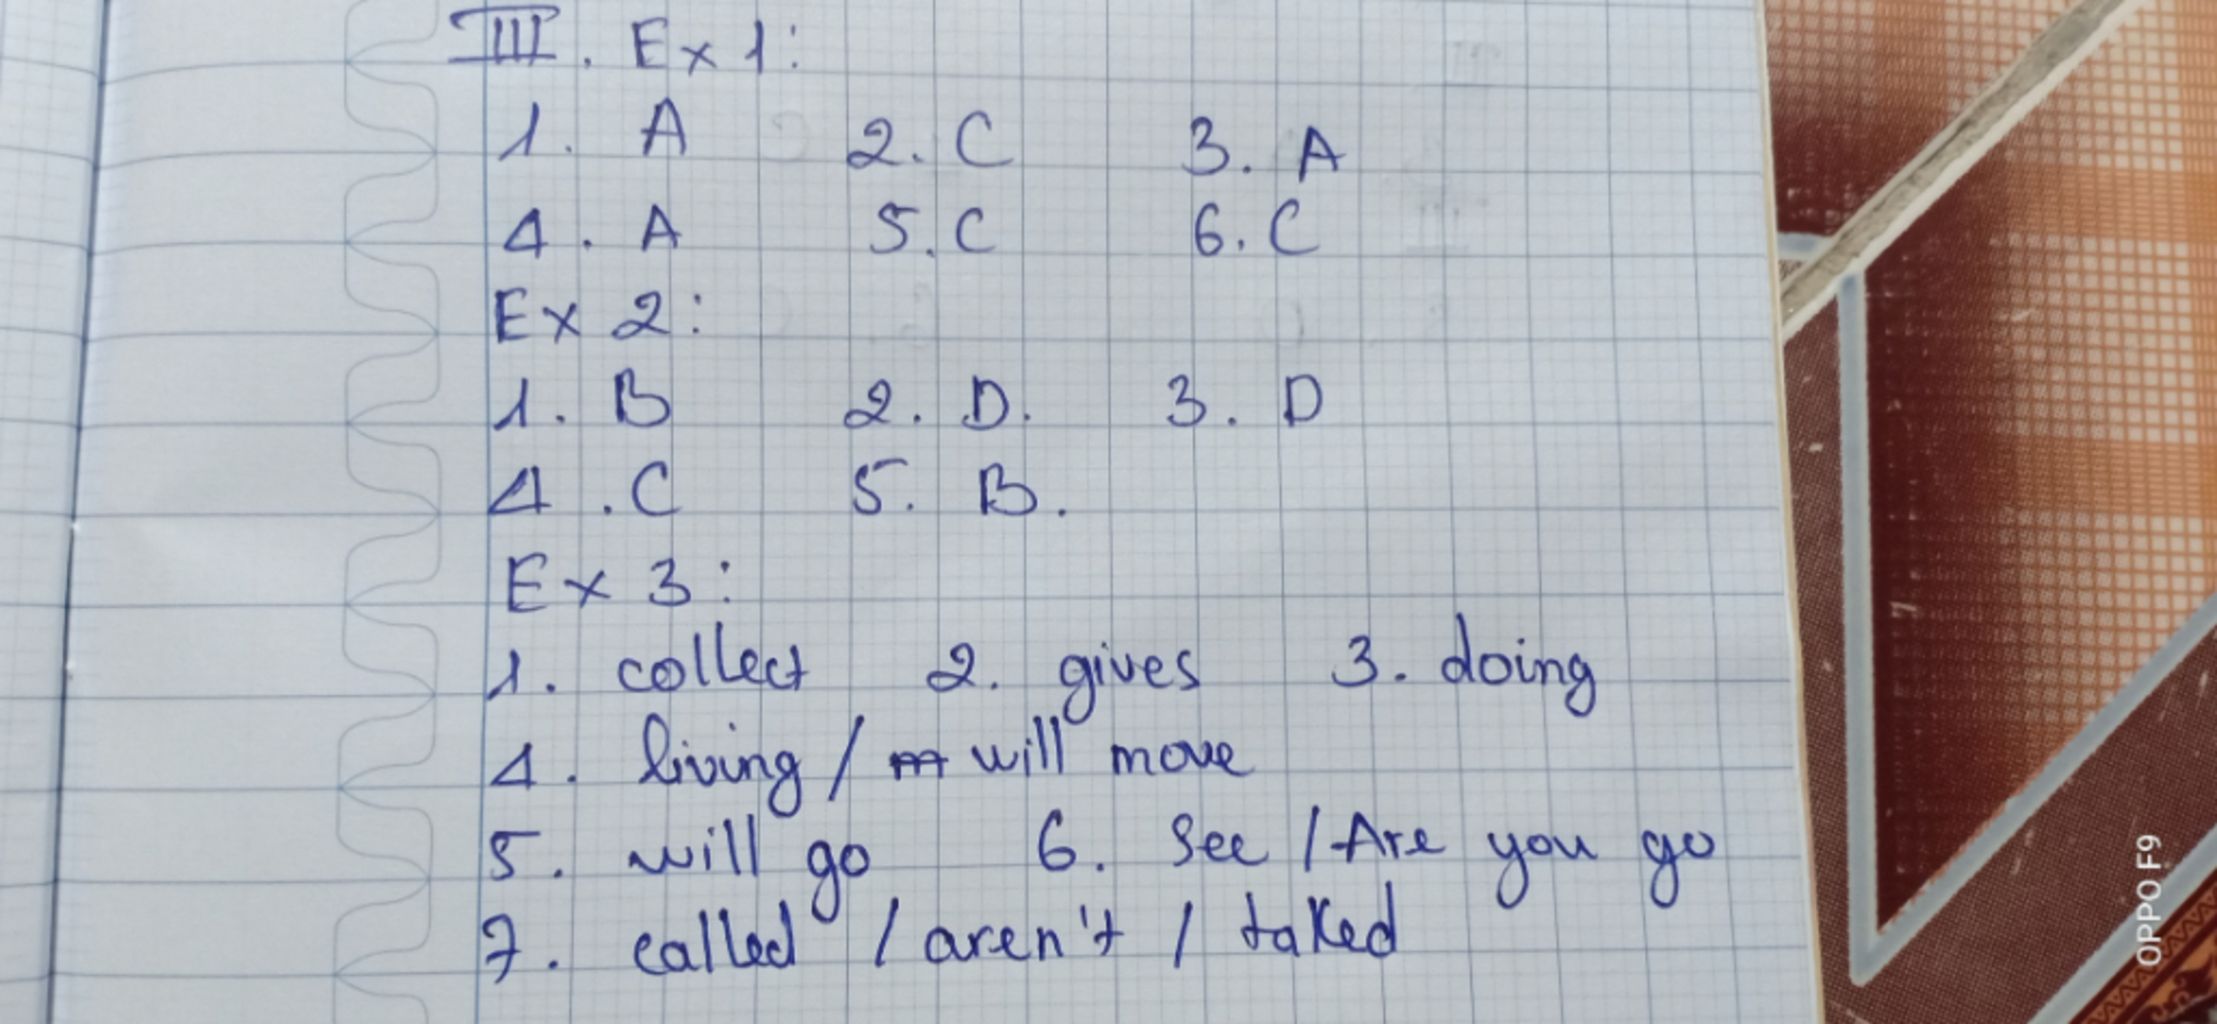 III. Ex 1:
1. A 2. C 3. A
4. A 5. C 6. C
Ex 2:
1. B 2. D. 3. D
4. C 5. B.
Ex 3:
1. collect 2. gives 3. doing
4. living / will move
5. will go 6. see / Are you go
7. called / aren't / taked
OPPO F9